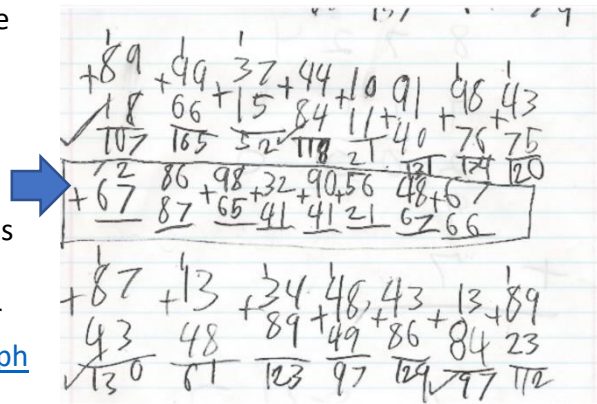 e
1 1 1 1 1
+89 +99 37 +44 +10 91 98 43
18 66 +15 84 11 +40 +76 +75
✓ 107 165 52 ✓ 118 21 131 174 120
72 86 98 +32 +90 +56 48 +67
+67 87 +65 41 41 21 67 66
s
1 1 1 1 1
+87 +13 +34 +48 43 13 +89
43 48 89 49 +86 +84 23
ph
✓ 130 61 123 97 129 ✓ 97 112